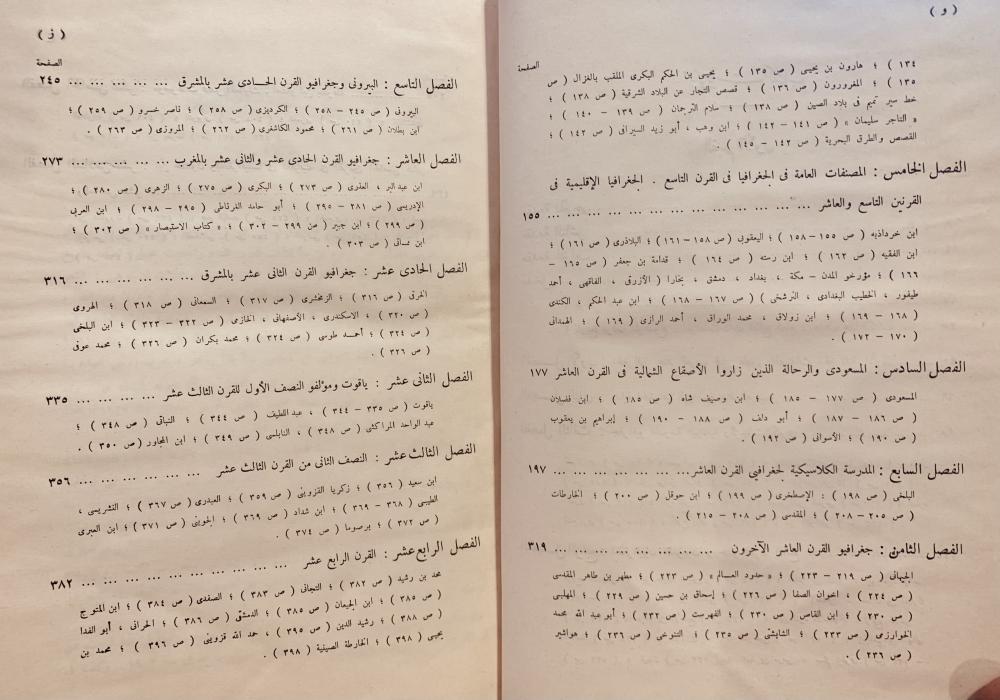 ( و )
الصفحة
١٣٤ ) ؛ هارون بن يحيى ( ص ١٣٥ ) ؛ يحيى بن الحكم البكرى الملقب بالغزال ( ص
١٣٥ ) ؛ المغرورون ( ص ١٣٦ ) ؛ قصص التجار عن البلاد الشرقية ( ص ١٣٨ ) ؛
خط سير تميم فى بلاد الصين ( ص ١٣٨ ) ؛ سلام الترجمان ( ص ١٣٩ – ١٤٠ ) ؛
« التاجر سليمان » ( ص ١٤١ – ١٤٢ ) ؛ ابن وهب ، أبو زيد السيرافى ( ص ١٤٢ ) ؛
القصص والطرق البحرية ( ص ١٤٢ – ١٤٥ ) .
الفصل الخامس : المصنفات العامة فى الجغرافيا فى القرن التاسع . الجغرافيا الإقليمية فى
القرنين التاسع والعاشر ... ... ... ... ... ... ... ... ... ... ... ... ... ١٥٥
ابن خرداذبه ( ص ١٥٥ – ١٥٨ ) ؛ اليعقوبى ( ص ١٥٨ – ١٦١ ) ؛ البلاذرى ( ص ١٦١ ) ؛
ابن الفقيه ( ص ١٦٢ ) ؛ ابن رسته ( ص ١٦٤ ) ؛ قدامة بن جعفر ( ص ١٦٥ –
١٦٦ ) ؛ مؤرخو المدن – مكة ، بغداد ، دمشق ، بخارا ( الأزرقى ، الفاقهى ، أحمد
طيفور ، الخطيب البغدادى ، النرشخى ) ( ص ١٦٧ – ١٦٨ ) ؛ ابن عبد الحكم ، الكندى
( ١٦٨ – ١٦٩ ) ؛ ابن زولاق ، محمد الوراق ، أحمد الرازى ( ١٦٩ ) ؛ الهمدانى
( ١٧٠ – ١٧٢ ) .
الفصل السادس : المسعودى والرحالة الذين زاروا الأصقاع الشمالية فى القرن العاشر ١٧٧
المسعودى ( ص ١٧٧ – ١٨٥ ) ؛ ابن وصيف شاه ( ص ١٨٥ ) ؛ ابن فضلان
( ص ١٨٦ – ١٨٧ ) ؛ أبو دلف ( ص ١٨٨ – ١٩٠ ) ؛ إبراهيم بن يعقوب
( ص ١٩٠ ) ؛ الأسوانى ( ص ١٩٢ ) .
الفصل السابع : المدرسة الكلاسيكية لجغرافيى القرن العاشر ... ... ... ... ... ... ١٩٧
البلخى ( ص ١٩٨ ) : الإصطخرى ( ص ١٩٩ ) ؛ ابن حوقل ( ص ٢٠٠ ) ؛ الخارطات
( ص ٢٠٥ – ٢٠٨ ) ؛ المقدسى ( ص ٢٠٨ – ٢١٥ ) .
الفصل الثامن : جغرافيو القرن العاشر الآخرون ... ... ... ... ... ... ... ... ٣١٩
الجيهانى ( ص ٢١٩ – ٢٢٣ ) ؛ « حدود العــالم » ( ص ٢٢٣ ) ؛ مطهر بن طاهر المقدسى
( ص ٢٢٤ ) ، اخوان الصفا ( ص ٢٢٦ ) ؛ إسحاق بن حسين ( ص ٢٢٩ ) ؛ المهلبى
( ص ٢٣٠ ) ؛ ابن القاص ( ص ٢٣٠ ) ؛ الفهرست ( ص ٢٣٢ ) ؛ أبو عبد الله محمد
الخوارزمى ( ص ٢٣٣ ) ؛ الشابشتى ( ص ٢٣٥ ) ؛ التنوخى ( ص ٢٣٦ ) ؛ هواشير
( ص ٢٣٦ ) .
( ز )
الصفحة
الفصل التاسع : البيرونى وجغرافيو القرن الحــادى عشر بالمشرق ... ... ... ... ... ٢٤٥
البيرونى ( ص ٢٤٥ – ٢٥٨ ؛ الكرديزى ( ص ٢٥٨ ) ؛ ناصر خسرو ( ص ٢٥٩ ) ؛
ابن بطلان ( ص ٢٦١ ) ؛ محمود الكاشغرى ( ص ٢٦٢ ) ؛ المروزى ( ص ٢٦٣ ) .
الفصل العاشر : جغرافيو القرن الحادى عشر والثانى عشر بالمغرب ... ... ... ... ... ٢٧٣
ابن عبد البر ، العذرى ( ص ٢٧٣ ) ؛ البكرى ( ص ٢٧٥ ) ؛ الزهرى ( ص ٢٨٠ ) ؛
الإدريسى ( ص ٢٨١ – ٢٩٥ ) ؛ أبو حامد الغرناطى ( ٢٩٥ – ٢٩٨ ) ؛ ابن العربى
( ص ٢٩٩ ) ؛ ابن جبير ( من ٢٩٩ – ٣٠٢ ) ؛ « كتاب الاستبصار » ( ص ٣٠٢ ) ؛
( ص ٣٠٣ ) .
الفصل الحادى عشر : جغرافيو القرن الثانى عشر بالمشرق ... ... ... ... ... ... ٣١٦
الخرقى ( ص ٣١٦ ) ؛ الزمخشرى ( ص ٣١٧ ) ؛ السمعانى ( ص ٣١٨ ) ؛ الهروى
( ص ٣٢٠ ) ، الاسكندرى ، الأصفهانى ، الحازمى ( ص ٣٢٢ – ٣٢٣ ) ؛ ابن البلخى
( ص ٣٢٤ ) ؛ أحمــد طوسى ( ص ٣٢٤ ) ؛ محمد بكران ( ص ٣٢٦ ) ؛ محمد عوفى
( ص ٣٢٦ ) .
الفصل الثانى عشر : ياقوت ومؤلفو النصف الأول للقرن الثالث عشر ... ... ... ... ٣٣٥
ياقوت ( ص ٣٣٥ – ٣٤٤ ) ، عبد اللطيف ( ص ٣٤٤ ) ؛ النباتى ( ص ٣٤٨ ) ؛
عبد الواحد المراكشى ( ص ٣٤٨ ) ، النابلسى ( ص ٣٤٩ ) ؛ ابن المجاور ( ص ٣٥٠ ) .
الفصل الثالث عشر : النصف الثانى من القرن الثالث عشر ... ... ... ... ... ... ٣٥٦
ابن سعيد ( ٣٥٦ ) ؛ زكريا القزوينى ( ص ٣٥٩ ) ؛ العبدرى ( ص ٣٦٧ ) ؛ القشريسى ،
الطيبى ( ٣٦٨ – ٣٦٩ ) ؛ ابن شداد ( ص ٣٦٩ ) ؛ الجوينى ( ص ٣٧١ ) ؛ ابن العبرى
( ص ٣٧٢ ) ؛ برصوما ( ص ٣٧٤ ) .
الفصل الرابع عشر : القرن الرابع عشر ... ... ... ... ... ... ... ... ... ... ٣٨٢
محمد بن رشيد ( ص ٣٨٢ ) ؛ التجانى ( ص ٣٨٣ ) ؛ الصفدى ( ص ٣٨٤ ) ؛ ابن المتوج
( ص ٣٨٥ ) ؛ ابن الجيعان ( ص ٣٨٥ ) ؛ الدمشقى ( ص ٣٨٦ ) ؛ الحرانى ، أبو الفدا
( ص ٣٨٨ ) ؛ رشيد الدين ( ص ٣٩٥ ) ، حمد الله قزوينى ( ص ٣٩٦ ) ؛ محمد بن
يحيى ( ٣٩٨ ) ؛ الخارطة الصينية ( ص ٣٩٨ ) .